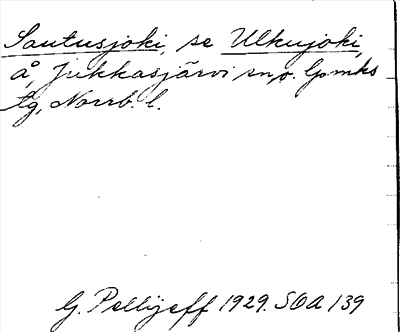 Sautusjoki, se Ulkujoki,
å, Jukkasjärvi sn, o. lpmks
tg, Norrb. l.
G. Pellijeff 1929. SOA 139